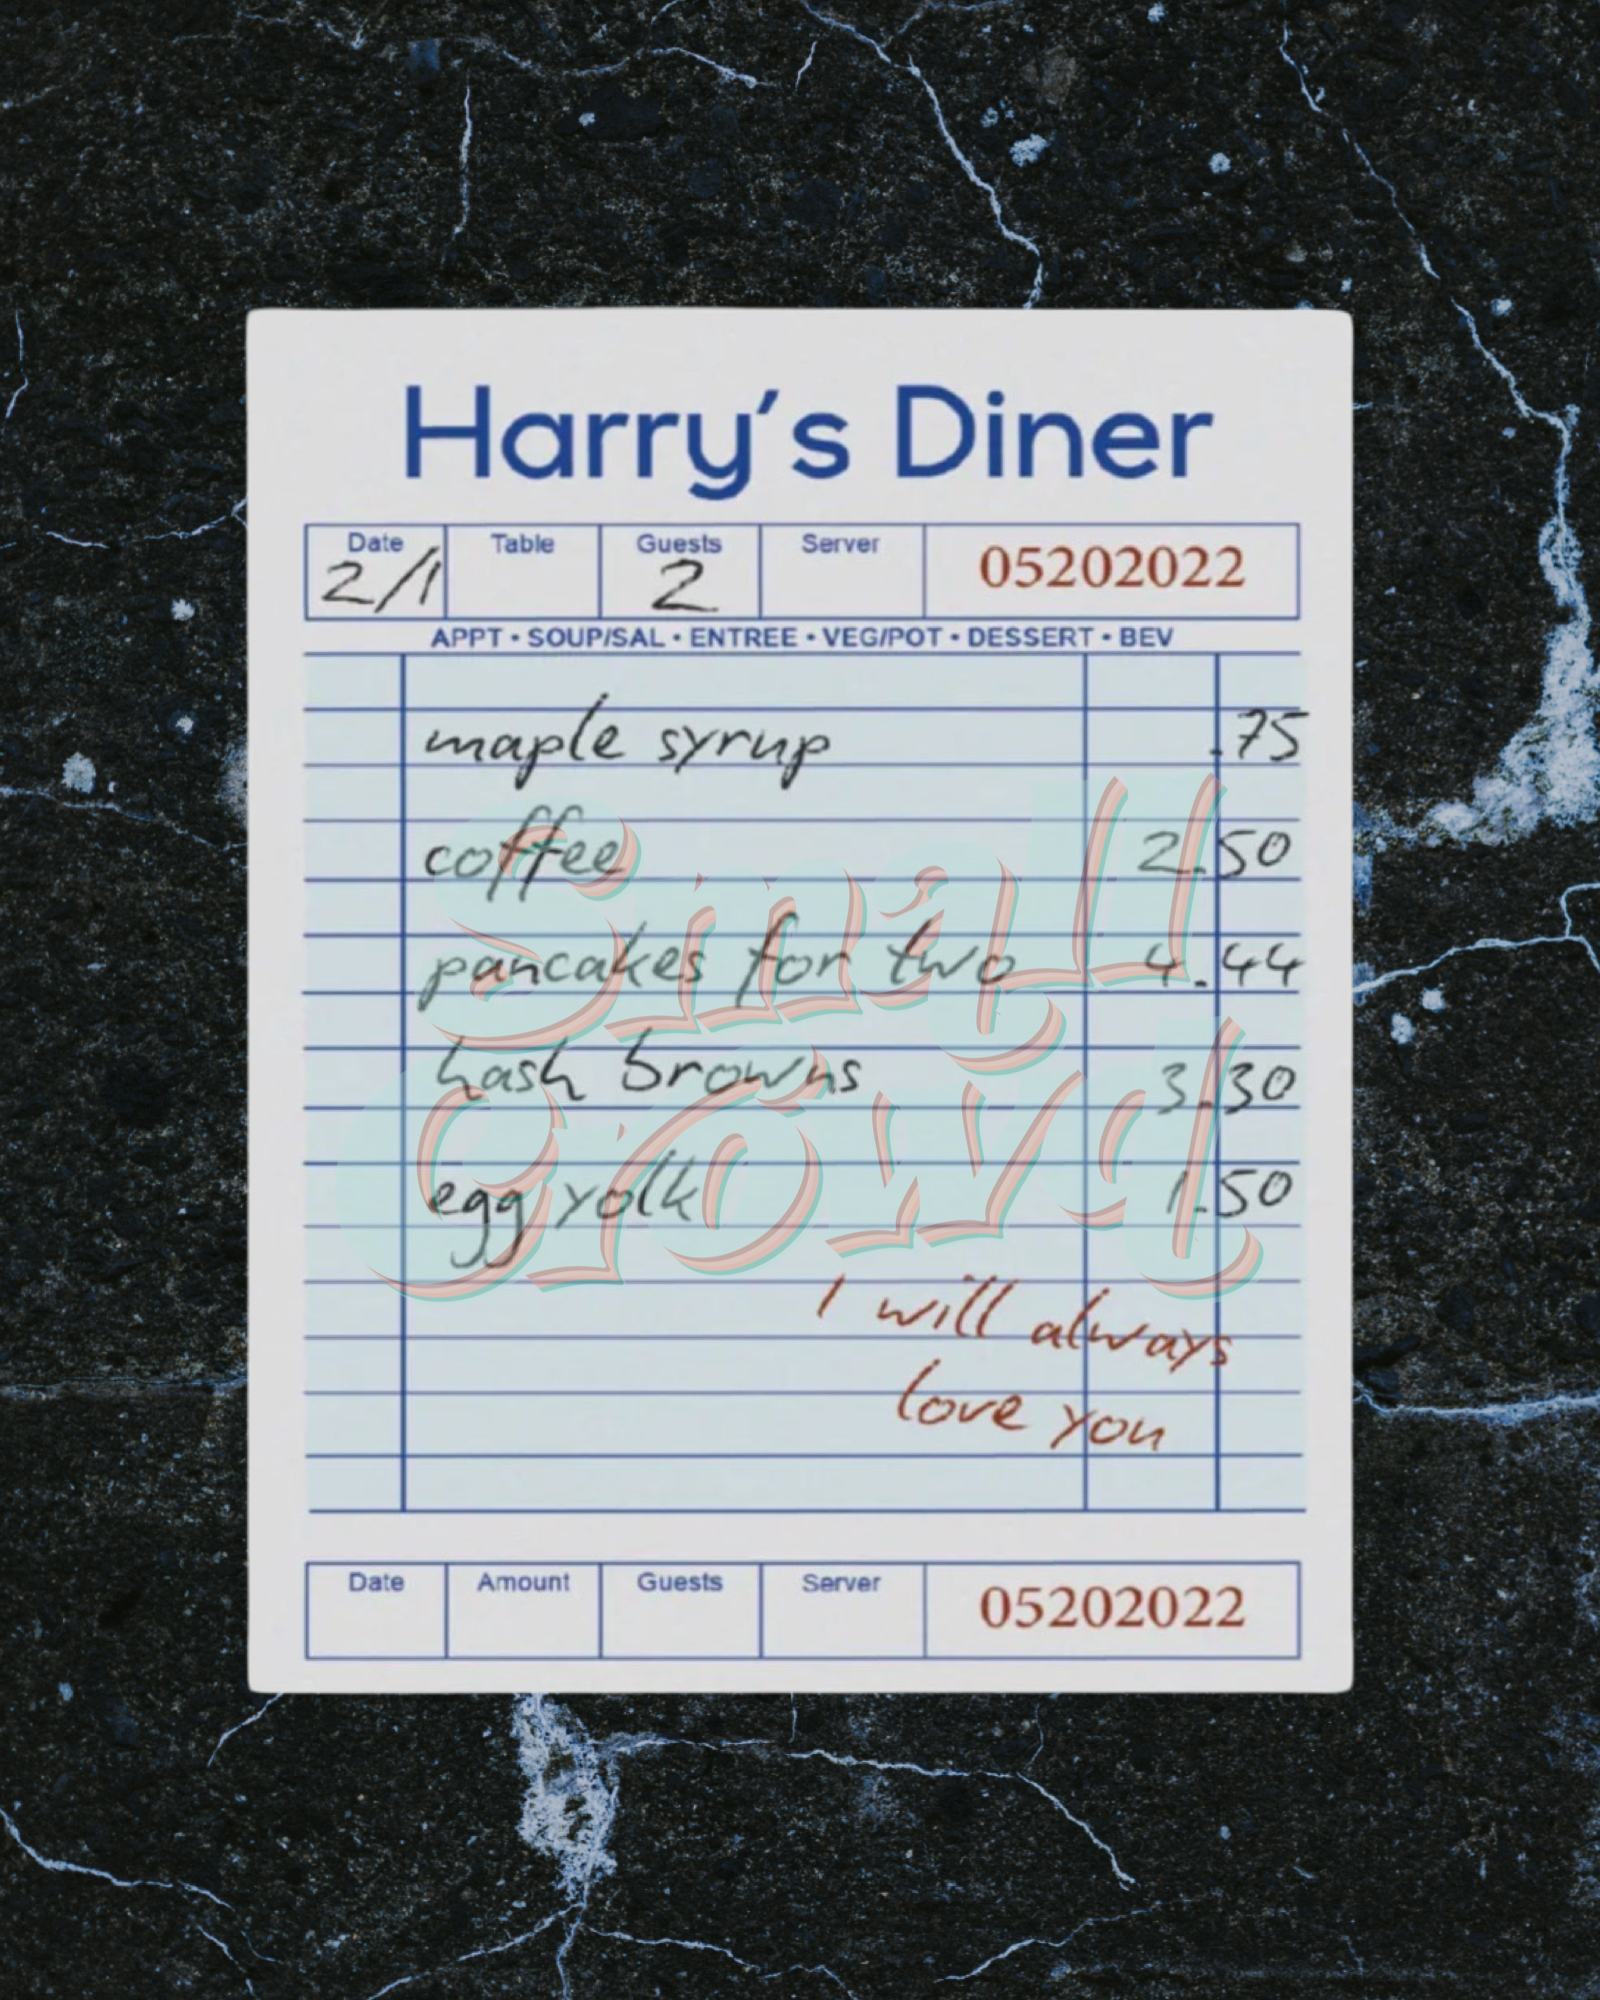 Harry's Diner
Date Table Guests Server 05202022
2/1 2
APPT • SOUP/SAL • ENTREE • VEG/POT • DESSERT • BEV
maple syrup .75
coffee 2.50
pancakes for two 4.44
hash browns 3.30
egg yolk 1.50
I will always
love you
Date Amount Guests Server 05202022
Small
Crowd